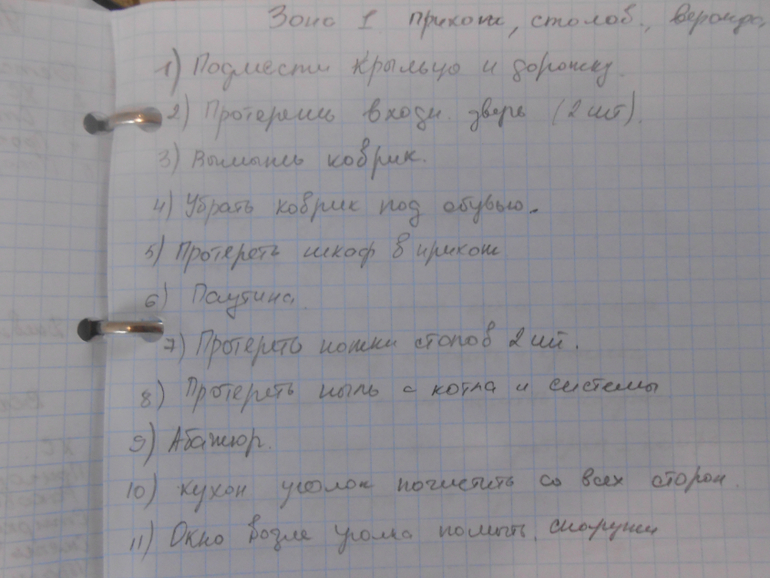 Зона 1 прихож, столов., веранда,
1) Подмести крыльцо и дорожку.
2) Протереть входн. дверь (2 шт).
3) Вымыть коврик.
4) Убрать коврик под обувью.
5) Протереть шкаф в прихож
6) Паутина.
7) Протереть ножки столов 2 шт.
8) Протереть пыль с котла и системы
9) Абажюр.
10) Кухон уголок почистить со всех сторон.
11) Окно возле уголка помыть снаружи